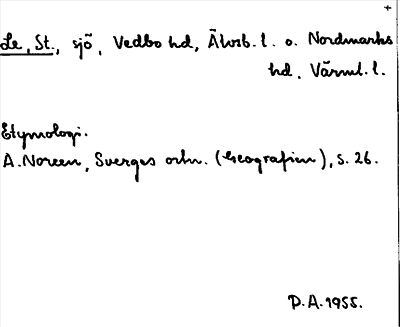 +
Le, St., sjö, Vedbo hd, Älvsb. l. o. Nordmarks
hd, Värml. l.
Etymologi.
A. Noreen, Sverges ortn. (Geografien), s. 26.
P.A. 1955.